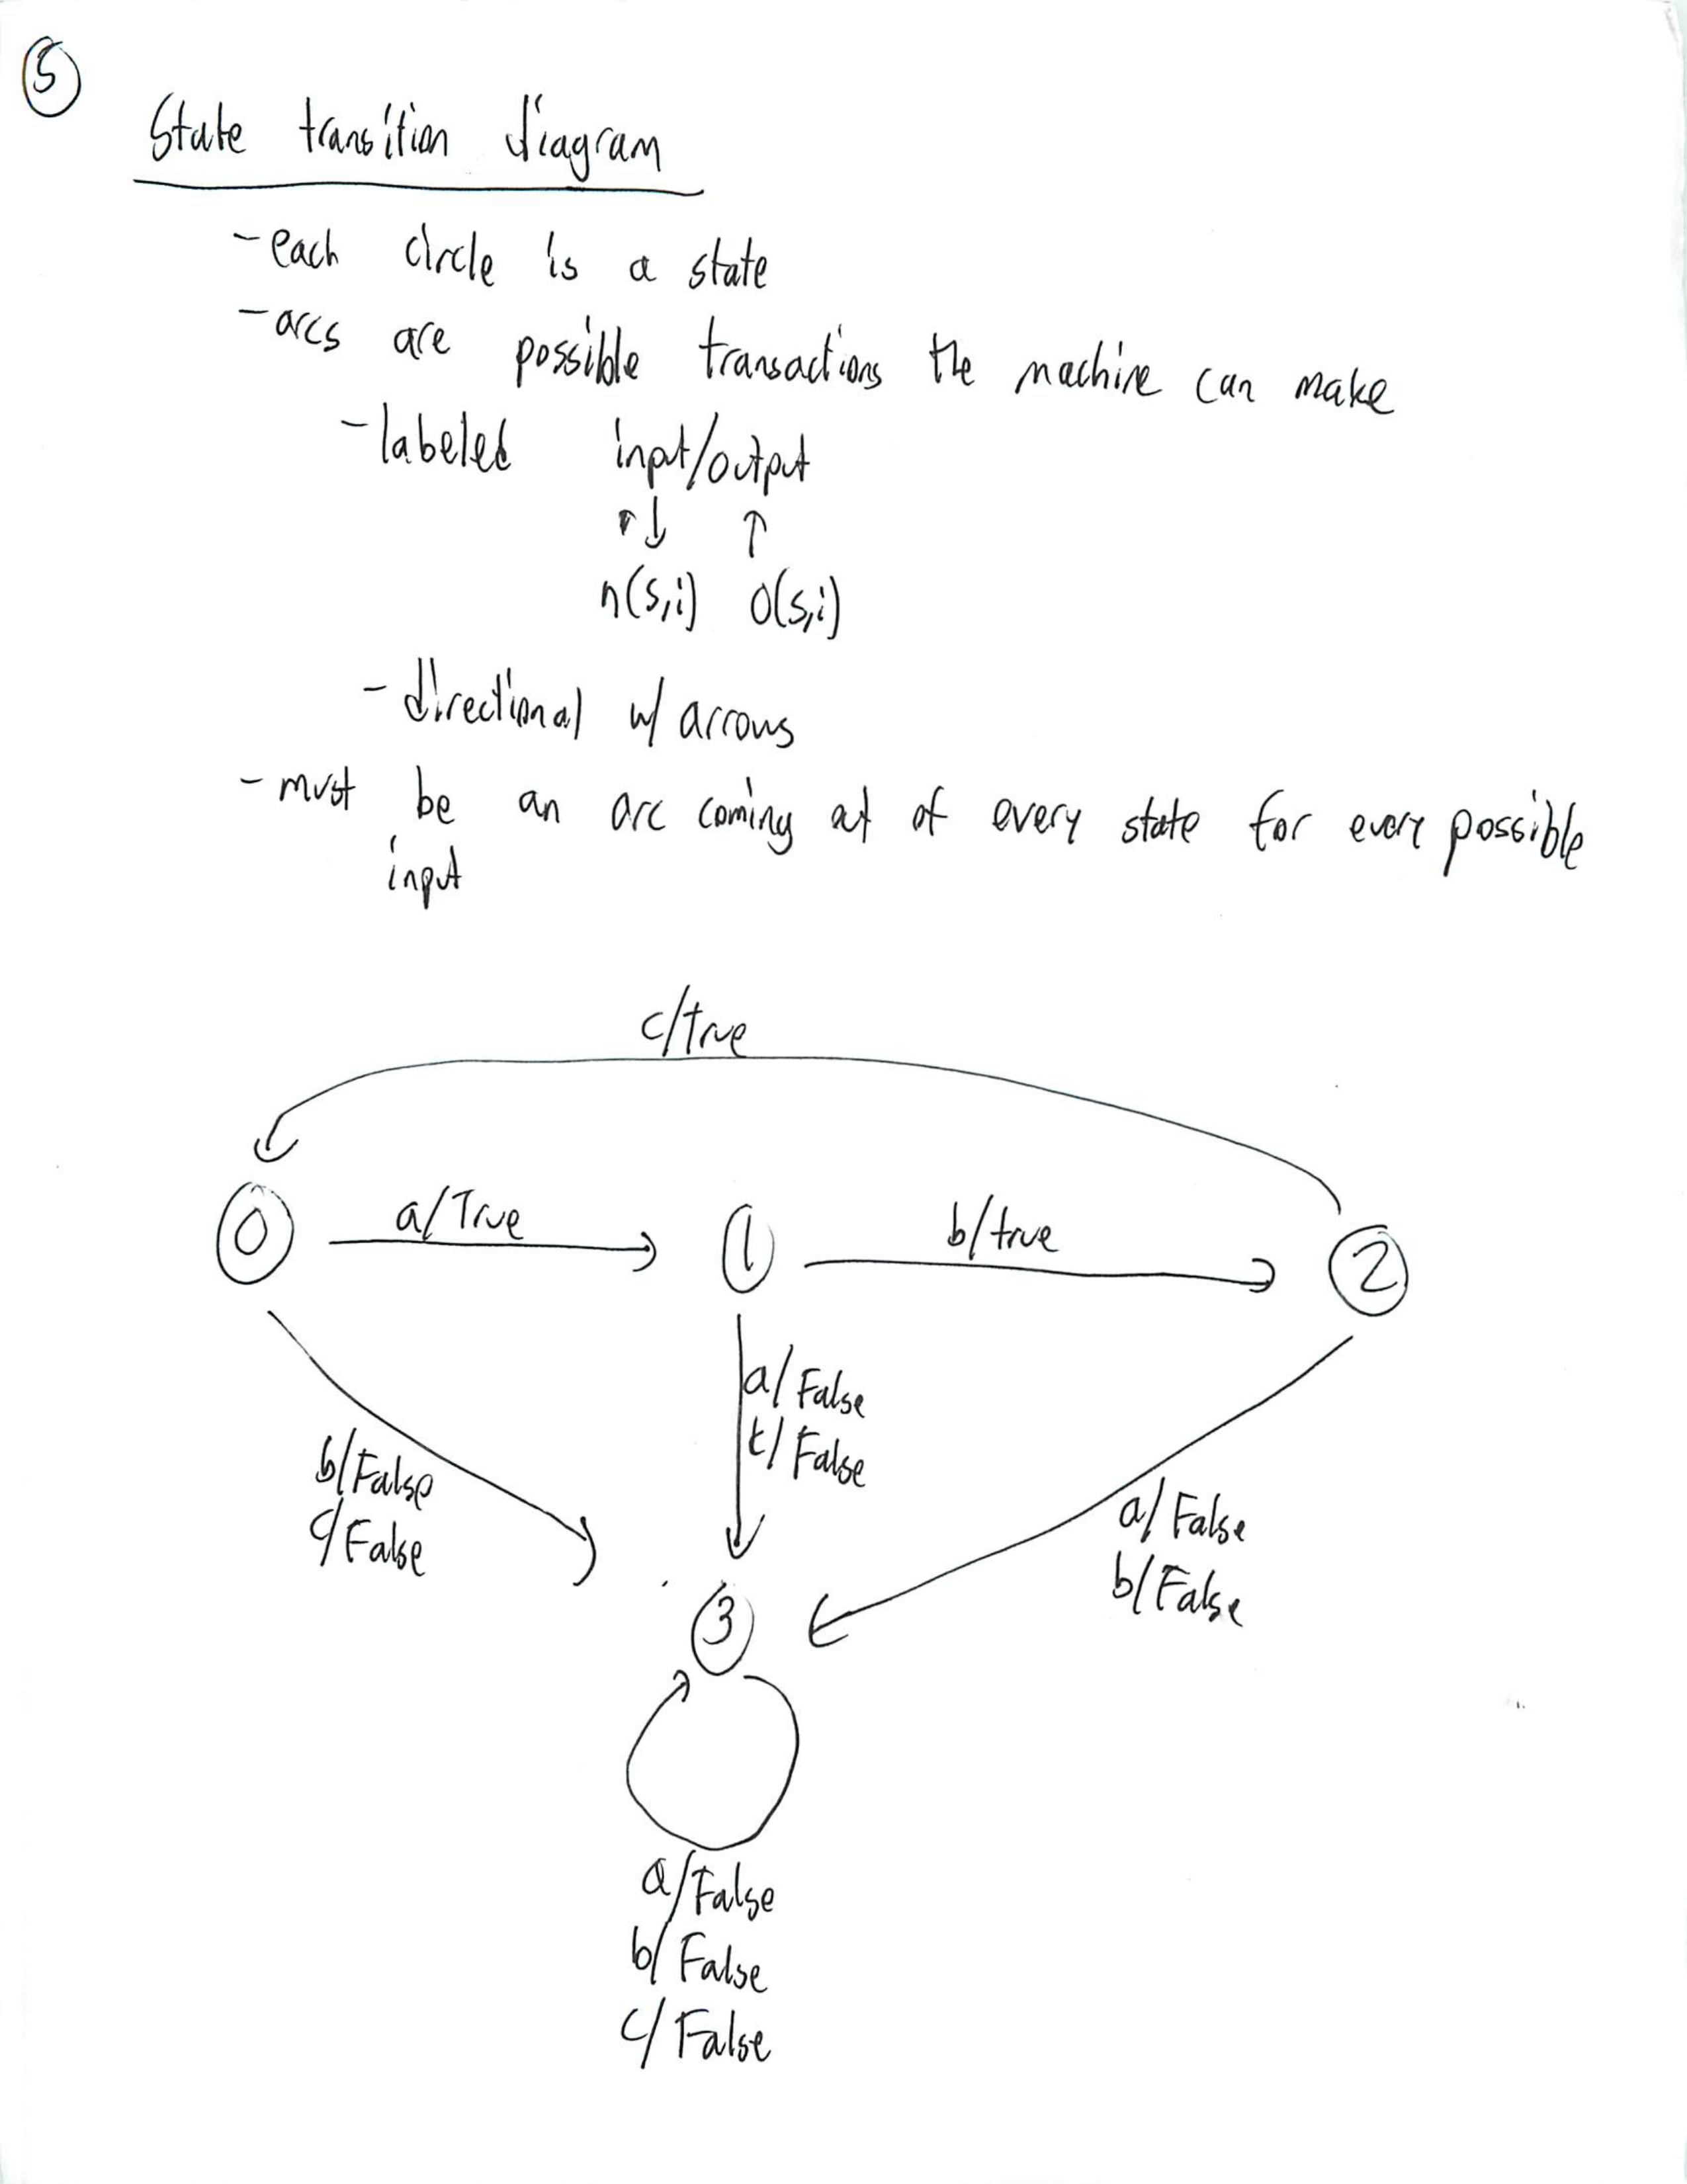 5
State transition diagram
- each circle is a state
- arcs are possible transactions the machine can make
- labeled input/output
↓ ↑
n(s,i) o(s,i)
- directional w/ arrows
- must be an arc coming out of every state for every possible
input
c/true
0 a/True 1 b/true 2
a/False
t/False
b/False
c/False
a/False
b/False
3
a/False
b/False
c/False